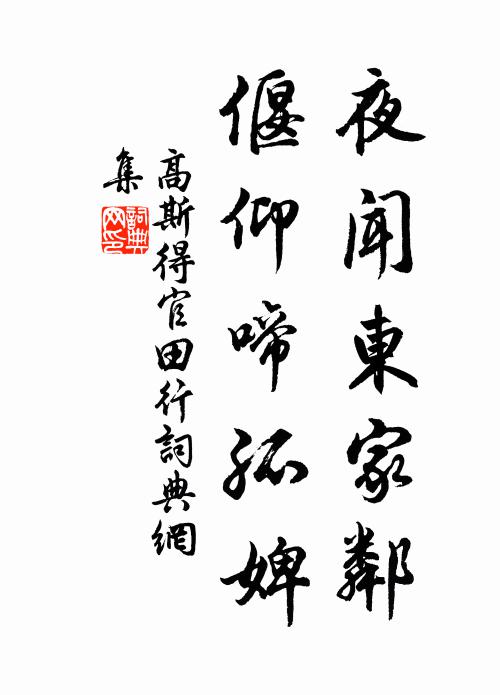 夜聞東家鄰
偃仰啼孤婢
高斯得官田行詞典網
集
詞典網印